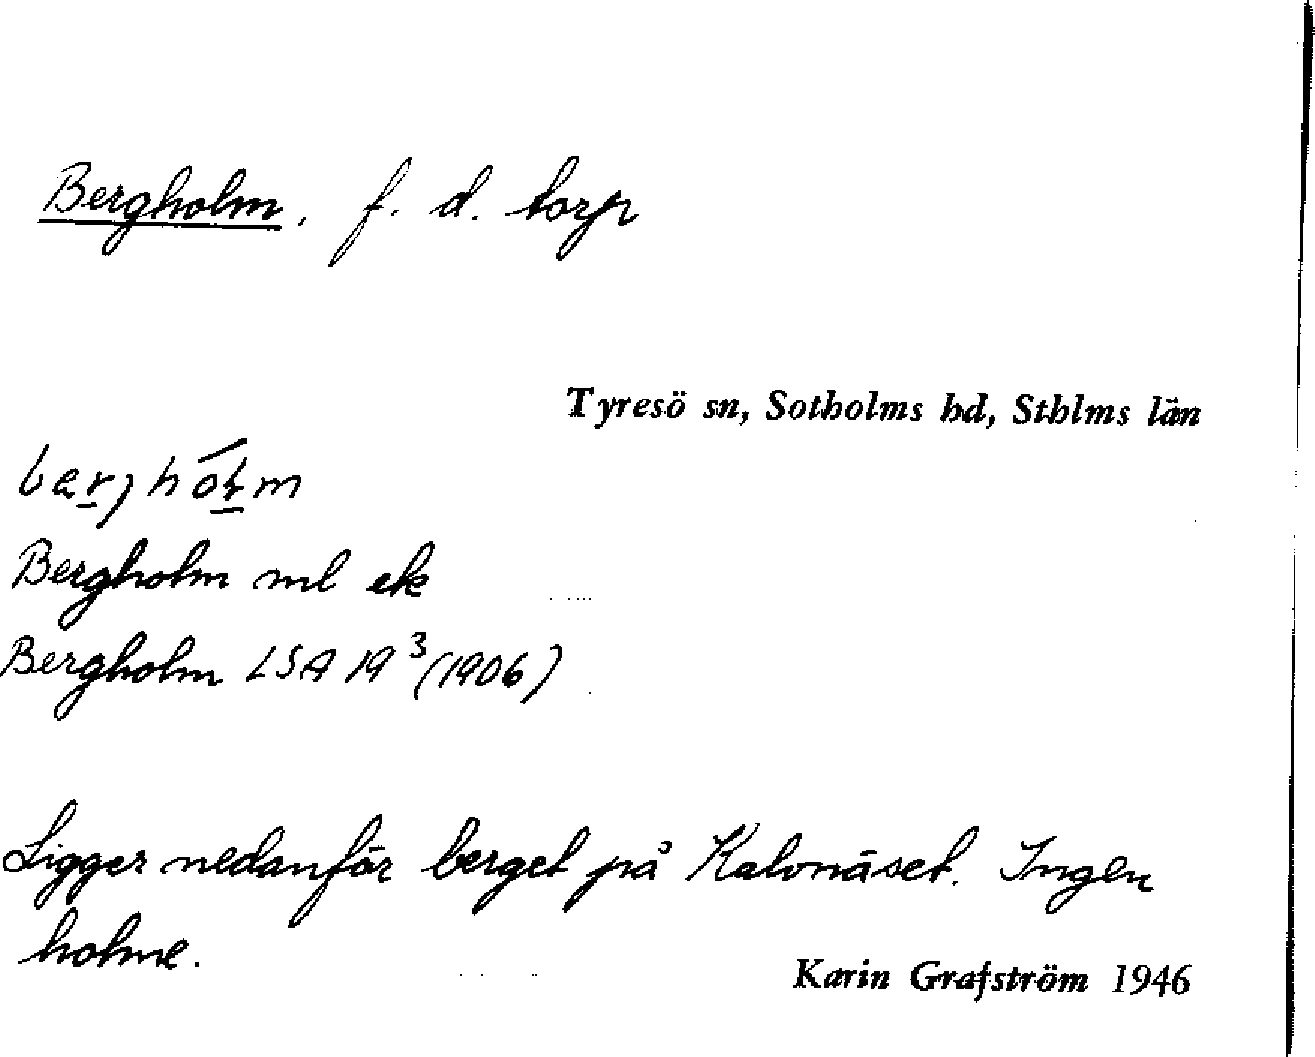 Bergholm, f. d. torp
Tyresö sn, Sotholms hd, Sthlms län
Bergholm ml ek
Bergholm LSA 19³ (1906)
Ligger nedanför berget på Kalvnäset. Ingen
holme.
Karin Grafström 1946